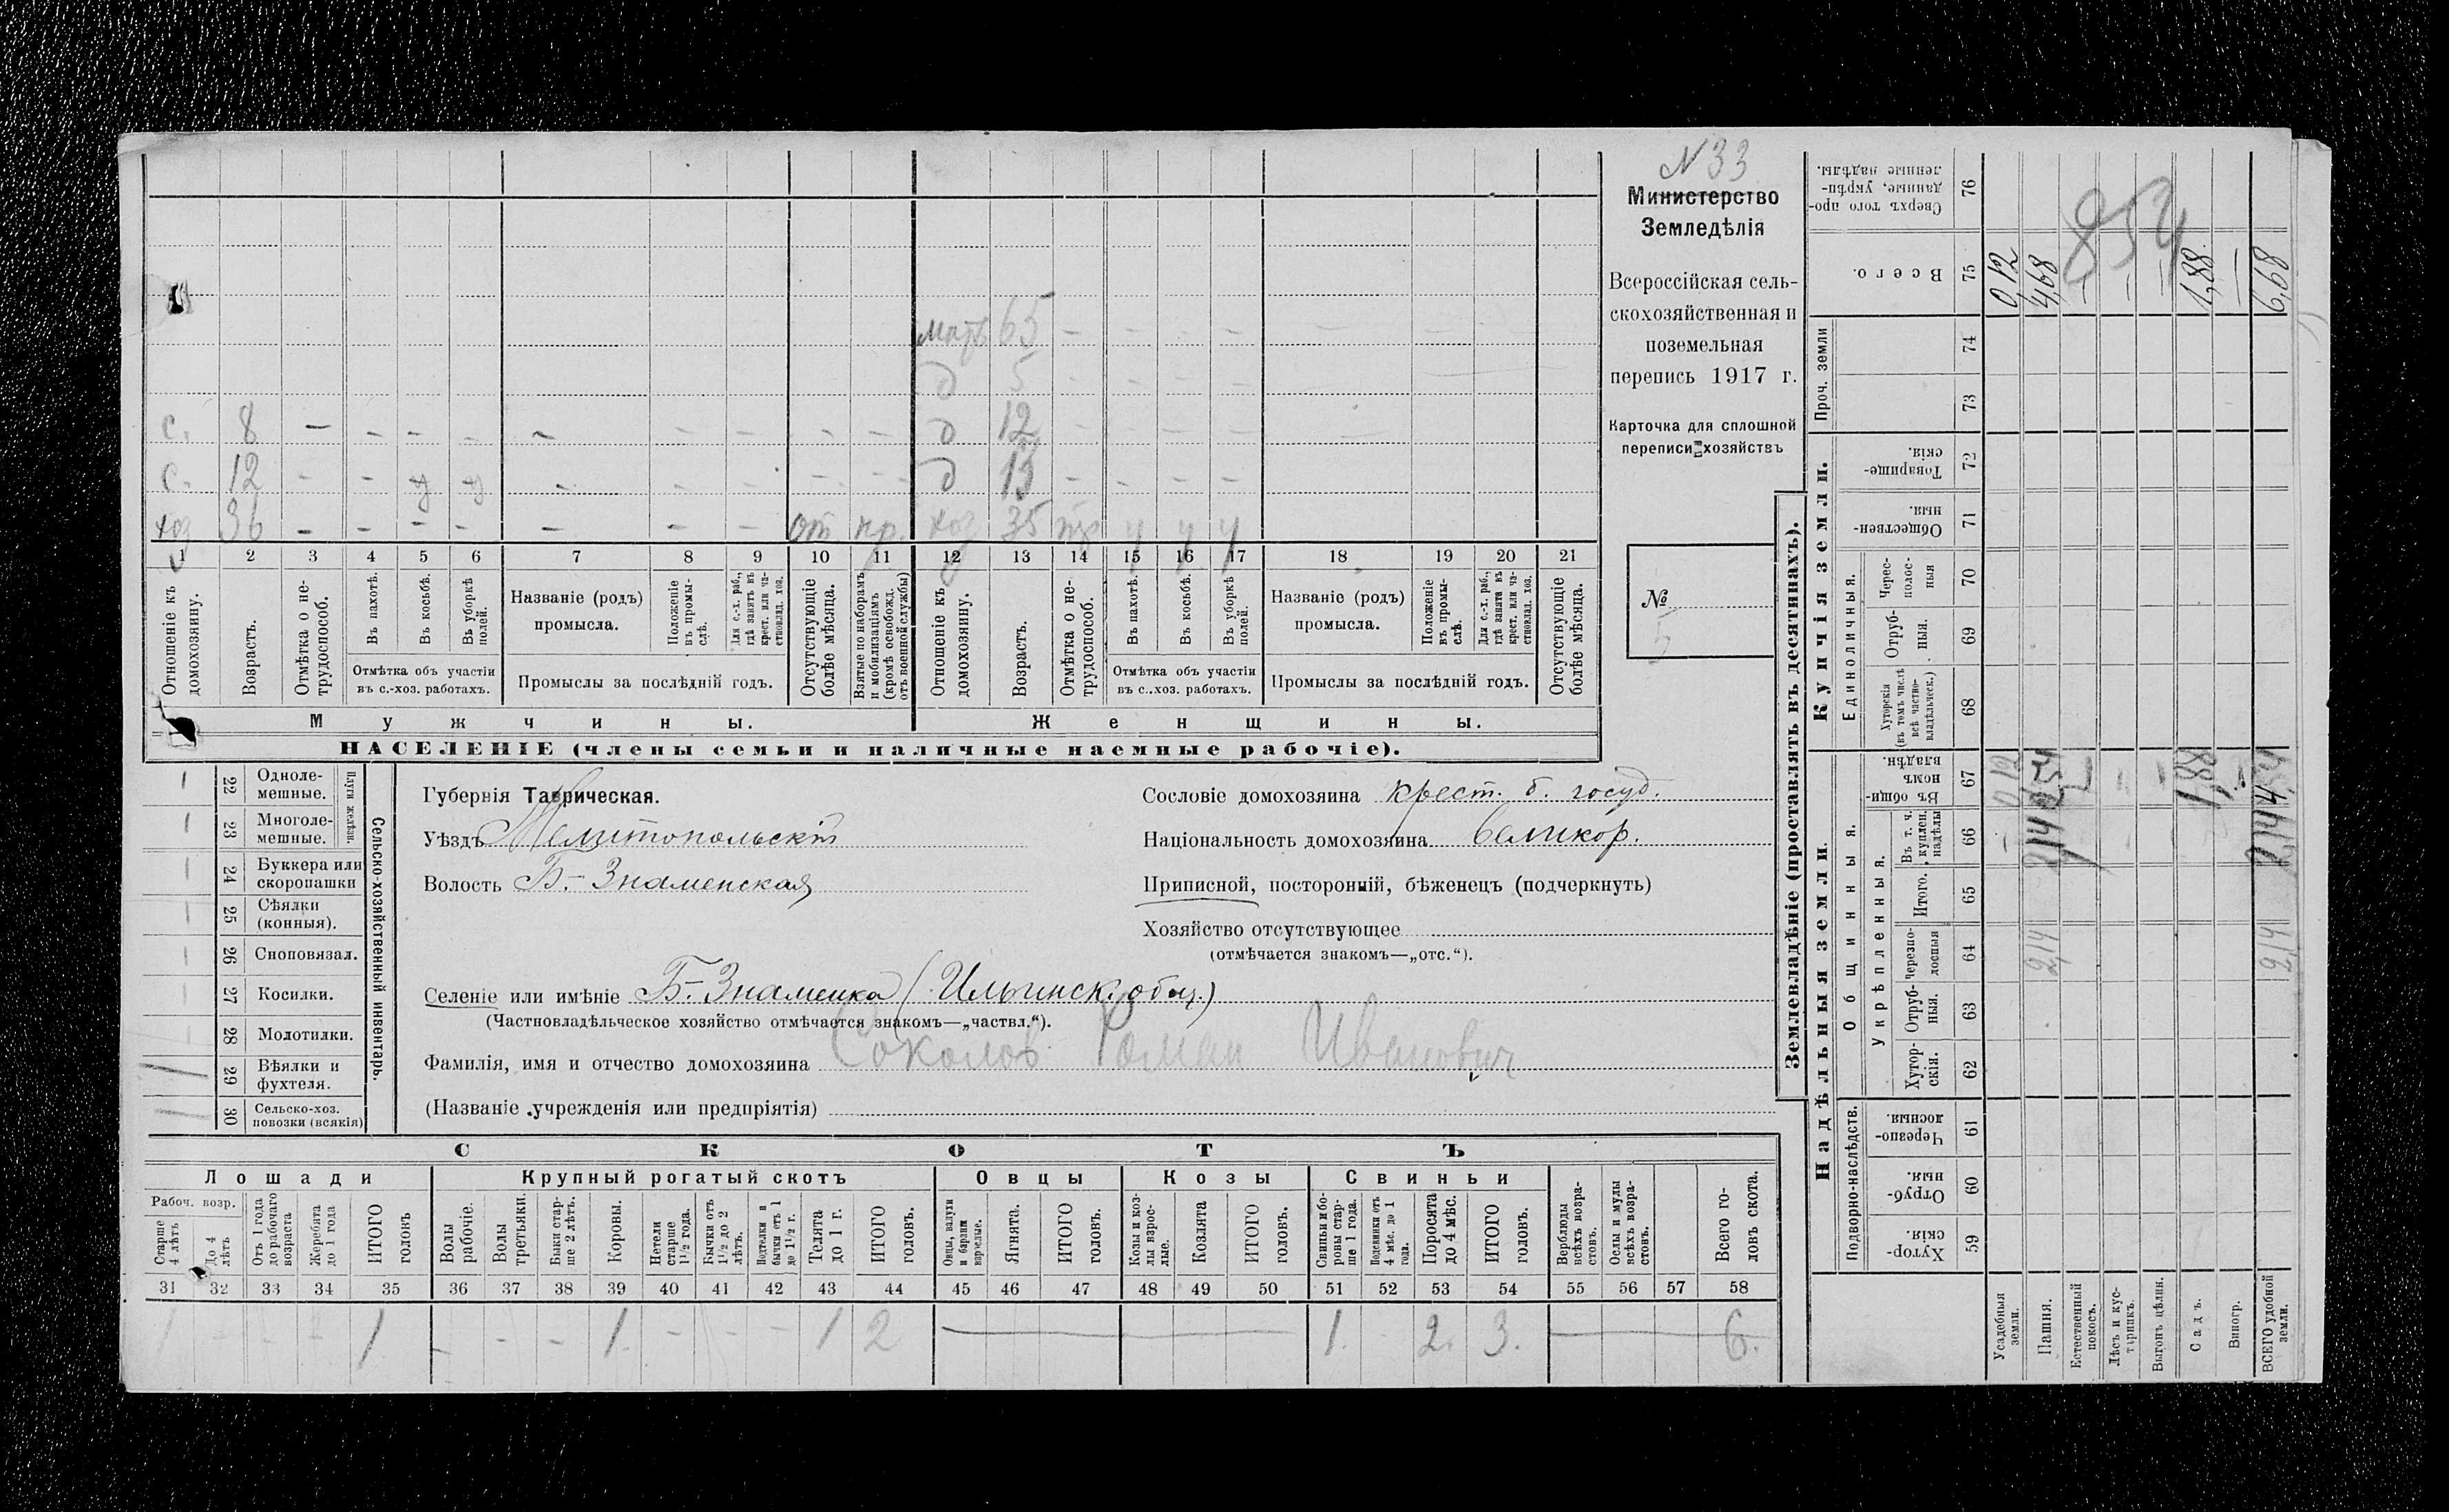 N 33
Министерство
Земледѣлія
Всероссійская сель-
скохозяйственная и
поземельная
перепись 1917 г.
Карточка для сплошной
переписи хозяйствъ
№
5
мать 65 - - - - - - -
д 5 - - - -
с. 8 - - - - - - - - - д 12 - - - - -
с. 12 - - у у - - - - - д 13 - - - -
хоз 36 - - - - - - - от пр. хоз 35 тр у у у
1 2 3 4 5 6 7 8 9 10 11 12 13 14 15 16 17 18 19 20 21
Отношеніе къ домохозяину.
Возрастъ.
Отмѣтка о не-трудоспособ.
Въ пахотѣ.
Въ косьбѣ.
Въ уборкѣ полей.
Отмѣтка объ участіи
въ с.-хоз. работахъ.
Названіе (родъ)
промысла.
Положеніе въ промы-слѣ.
Для с.-х. раб., гдѣ занятъ въ крест. или ча-стновлад. хоз.
Промыслы за послѣдній годъ.
Отсутствующіе болѣе мѣсяца.
Взятые по наборамъ и мобилизаціямъ (кромѣ освобожд. отъ военной службы)
Отношеніе къ домохозяину.
Возрастъ.
Отмѣтка о не-трудоспособ.
Въ пахотѣ.
Въ косьбѣ.
Въ уборкѣ полей.
Отмѣтка объ участіи
въ с.-хоз. работахъ.
Названіе (родъ)
промысла.
Положеніе въ промы-слѣ.
Для с.-х. раб., гдѣ занята въ крест. или ча-стновлад. хоз.
Промыслы за послѣдній годъ.
Отсутствующіе болѣе мѣсяца.
Мужчины. Женщины.
НАСЕЛЕНІЕ (члены семьи и наличные наемные рабочіе).
Сельско-хозяйственный инвентарь.
Плуги желѣзн.
22 Одноле-мешные.
23 Многоле-мешные.
24 Буккера или скоропашки
25 Сѣялки (конныя).
26 Сноповязал.
27 Косилки.
28 Молотилки.
29 Вѣялки и фухтеля.
30 Сельско-хоз. повозки (всякія)
Губернія Таврическая.
Уѣздъ Мелитопольскій
Волость Б.-Знаменская
Селеніе или имѣніе Б.-Знаменка (Ильинск. общ.)
(Частновладѣльческое хозяйство отмѣчается знакомъ—„частвл.“).
Фамилія, имя и отчество домохозяина Соколов Роман Иванович
(Названіе учрежденія или предпріятія)
Сословіе домохозяина крест. б. госуд.
Національность домохозяина великор.
Приписной, посторонній, бѣженецъ (подчеркнуть)
Хозяйство отсутствующее
(отмѣчается знакомъ—„отс.“).
СКОТЪ
Лошади Крупный рогатый скотъ Овцы Козы Свиньи
Рабоч. возр.
Старше 4 лѣтъ
До 4 лѣтъ
Отъ 1 года до рабочаго возраста
Жеребята до 1 года
ИТОГО головъ
Волы рабочіе.
Волы третьяки.
Быки стар-ше 2 лѣтъ.
Коровы.
Нетели старше 1½ года.
Бычки отъ 1½ до 2 лѣтъ.
Подтелки и бычки отъ 1 до 1½ г.
Телята до 1 г.
ИТОГО головъ.
Овцы, валухи и бараны взрослые.
Ягнята.
ИТОГО головъ.
Козы и коз-лы взрос-лые.
Козлята
ИТОГО головъ.
Свиньи и бо-ровы стар-ше 1 года.
Подсвинки отъ 4 мѣс. до 1 года.
Поросята до 4 мѣс.
ИТОГО головъ.
Верблюды всѣхъ возра-стовъ.
Ослы и мулы всѣхъ возра-стовъ.
Всего го-ловъ скота.
31 32 33 34 35 36 37 38 39 40 41 42 43 44 45 46 47 48 49 50 51 52 53 54 55 56 57 58
1 - - - 1 - - - 1. - - - 1 2 1. 2. 3. 6.
Землевладѣніе (проставлять въ десятинахъ).
Надѣльныя земли. Купчія земли. Проч. земли
Подворно-наслѣдств. Общинныя. Единоличныя.
Укрѣпленныя.
Хутор-скія. 59
Отруб-ныя. 60
Черезпо-лосныя. 61
Хутор-скія. 62
Отруб-ныя. 63
Черезпо-лосныя 64
Итого. 65
Въ т. ч. куплен. надѣлы 66
Въ общин-номъ владѣн. 67
Хуторскія (въ томъ числѣ всѣ частно-владѣльческ.) 68
Отруб-ныя. 69
Черес-полос-ныя 70
Обществен-ныя. 71
Товарище-скія. 72
73
74
Всего. 75
Сверхъ того про-данные, укрѣп-ленные надѣлы. 76
854
Усадебныя земли. 0,12 0,12
Пашня. 2,14 2,14 2,54 4,68
Естественный покосъ.
Лѣсъ и кус-тарникъ.
Выгонъ цѣлин.
Садъ. 1,88 1,88
Виногр.
ВСЕГО удобной земли. 2,14 2,14 4,54 6,68